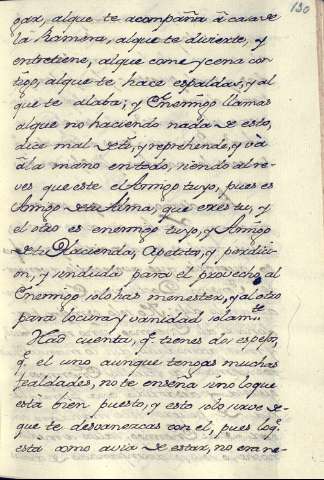 130
gar, alque te acompaña â casa de
la Ramera, alque te divierte, y
entretiene, alque come y cena con
tigo, alque te hace espaldas, y al
que te alaba; y Enemigo llamas
alque no haciendo nada de esto,
dice mal de ti, y reprehende, y và
âla mano entodo, siendo al re-
ves que este el Amigo tuyo, pues es
Amigo de tu Alma, que eres tu, y
el otro es enemigo tuyo, y Amigo
de tu Hacienda, Apetito, y perdici-
on, y sinduda para el provecho al
Enemigo solo has menester, y al otro
para locura y vanidad solamte.
Haz cuenta, q.e tienes dos espejos,
q.e el uno aunque tengas muchas
fealdades, no te enseña sino loque
està bien puesto, y esto solo sirve de
que te desvanezcas con el, pues loq.e
està como avia de estar, no era ne-